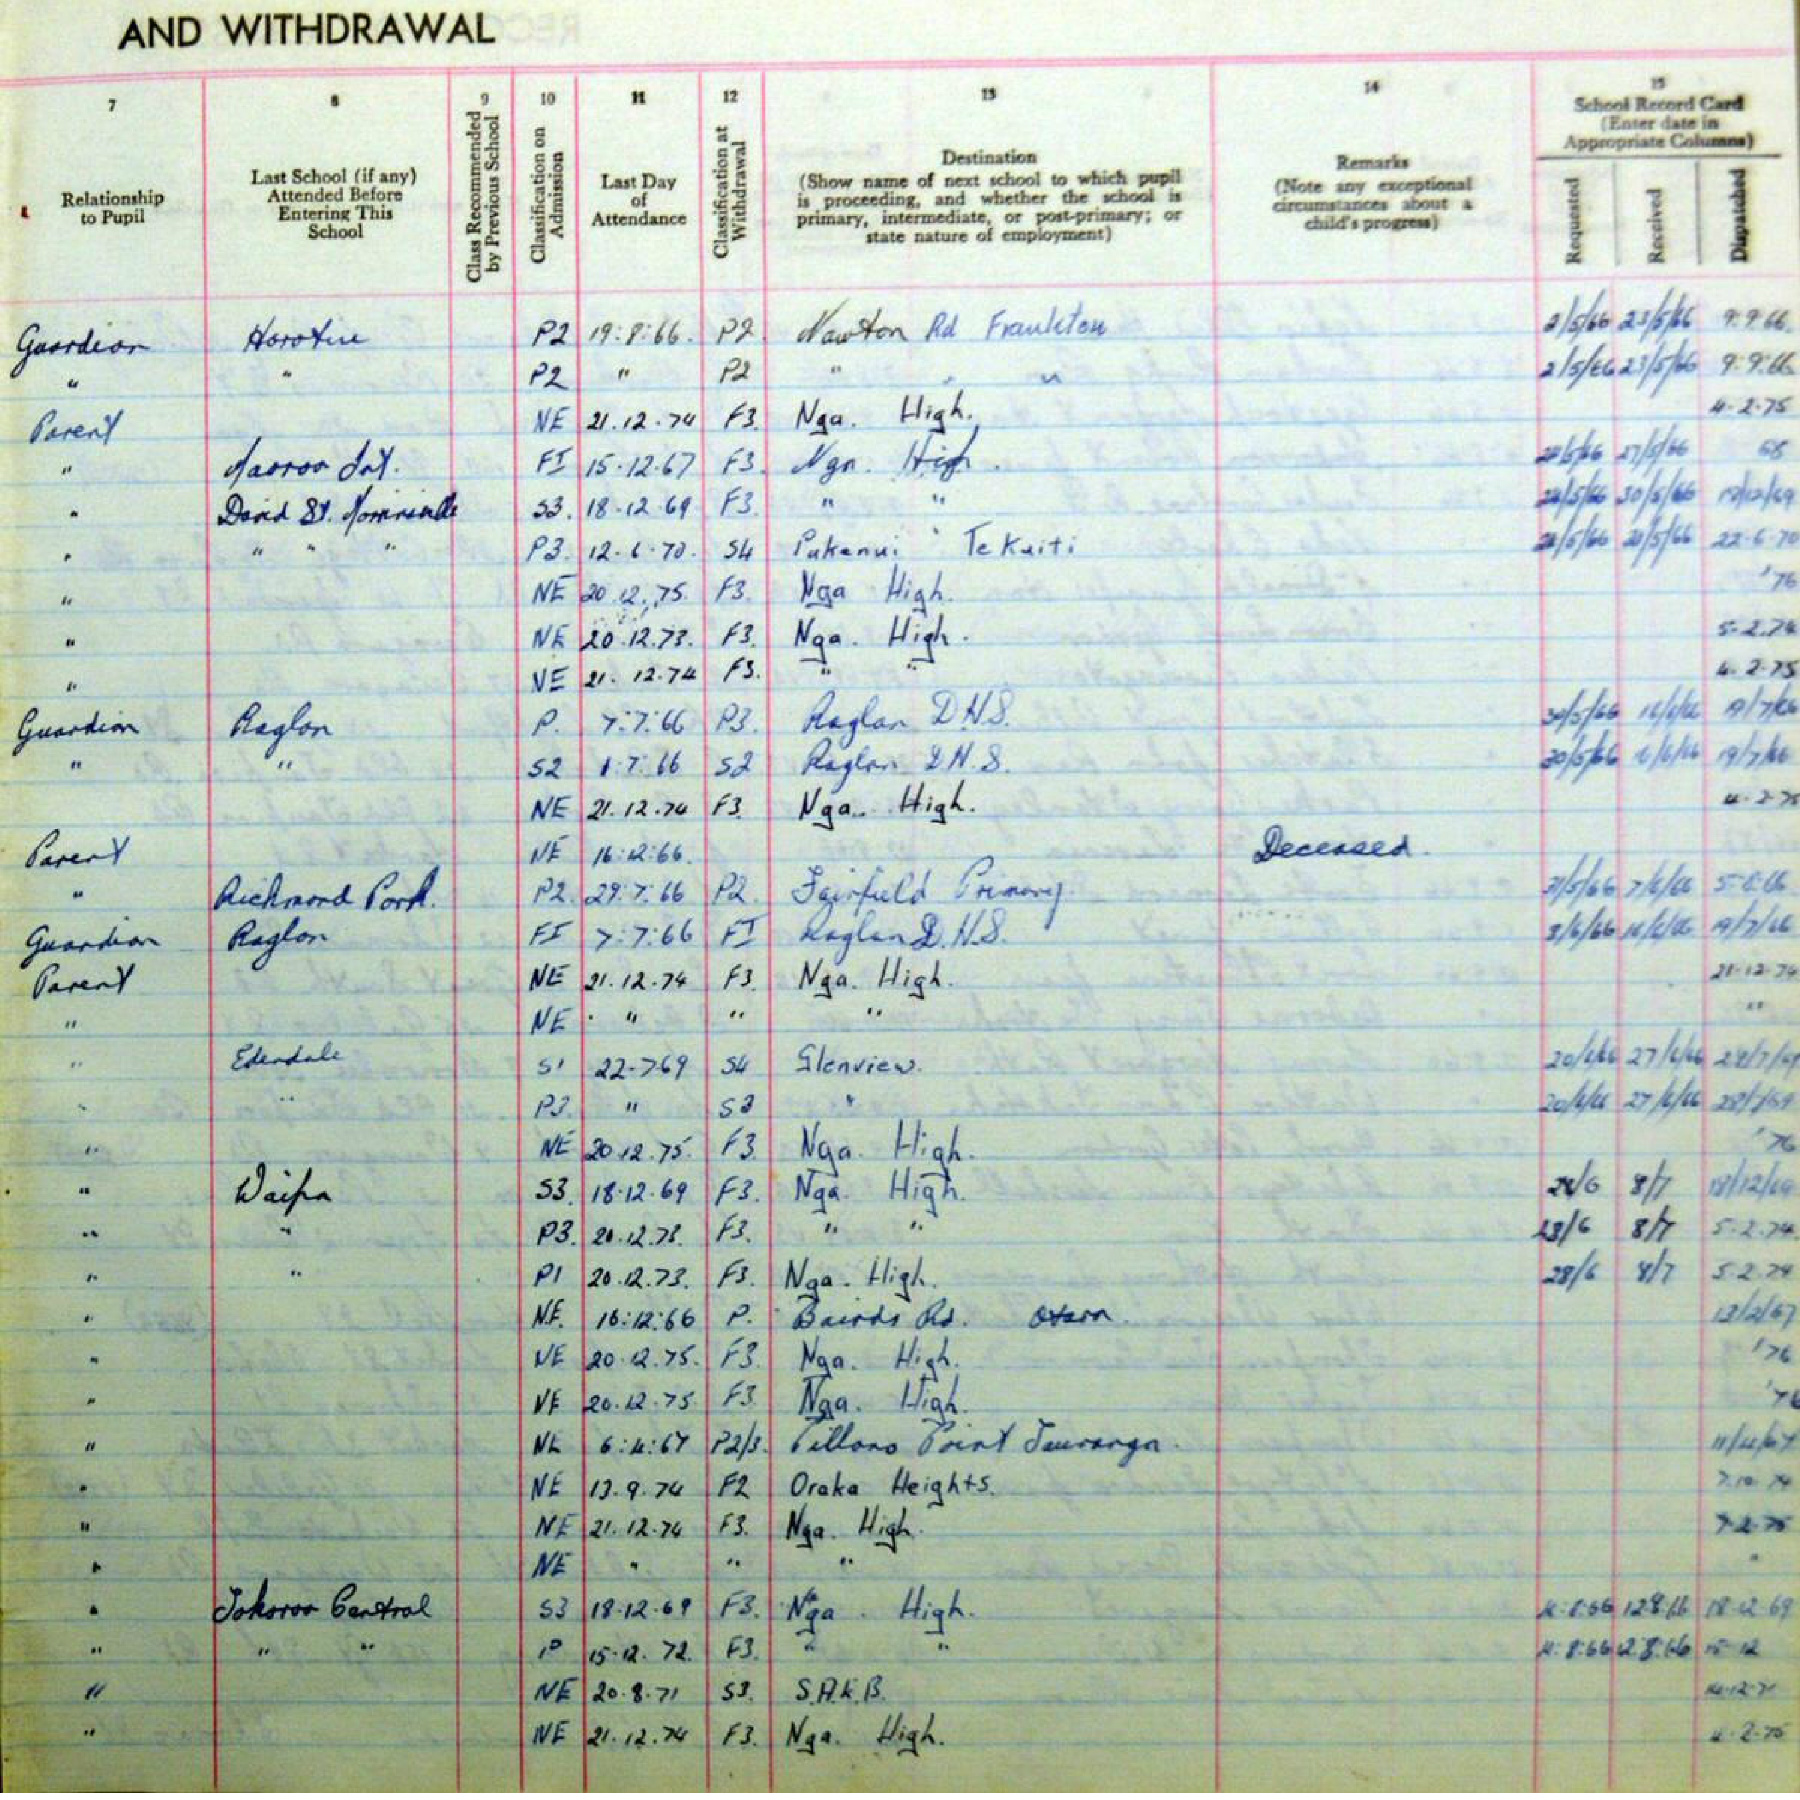 AND WITHDRAWAL
7 8 9 10 11 12 13 14 15
Relationship to Pupil
Last School (if any) Attended Before Entering This School
Class Recommended by Previous School
Classification on Admission
Last Day of Attendance
Classification at Withdrawal
Destination (Show name of next school to which pupil is proceeding, and whether the school is primary, intermediate, or post-primary; or state nature of employment)
Remarks (Note any exceptional circumstances about a child's progress)
School Record Card (Enter date in Appropriate Columns)
Requested Received Dispatched
Guardian Horotiu P2 19:8:66. P2. Rd Frankton 2/5/66 23/5/66 9.9.66
" " P2 " P2 " " " 2/5/66 23/5/66 9.9.66
Parent NE 21.12.74 F3. Nga. High. 4.2.75
" Int. FI 15.12.67 F3. Nga. High. 27/5/66 68
" David St. Morrinsville S3. 18.12.69 F3. " " 30/5/66 19/12/69
" " " " P3. 12.6.70. S4 Pukenui Te Kuiti 22.6.70
" NE 20.12.75. F3. Nga High. '76
" NE 20.12.73. F3. Nga. High. 5.2.74
" NE 21.12.74 F3. " " 4.2.75
Guardian Raglan P. 7:7:66 P3. Raglan D.H.S. 30/5/66 19/7/66
" " S2 7.66 S2 Raglan D.H.S. 30/5/66 19/7/66
NE 21.12.74 F3. Nga. High. 4.2.75
Parent NE 16:12:66. Deceased.
" Richmond Park. P2. 29:7:66 P2. Fairfield Primary. 31/5/66 7/6/66
Guardian Raglan FI 7:7:66 FI Raglan D.H.S. 19/7/66
Parent NE 21.12.74 F3. Nga. High. 21.12.74
" NE " " " "
" Edendale S1 22.7.69 S4 Glenview. 20/6/66 27/6/66 28/7/69
" " P3. " S3 " 20/6/66 27/6/66 28/7/69
" NE 20.12.75. F3. Nga. High. '76
" Waipa S3. 18.12.69 F3. Nga. High. 8/7 18/12/69
" " P3. 20.12.73. F3. " " 8/7 5.2.74
" " P1 20.12.73. F3. Nga. High. 28/6 8/7 5.2.74
" NE. 16:12:66 P. Bairds Rd. Otara. 13/2/67
" NE 20.12.75. F3. Nga. High. '76
" NE 20.12.75 F3. Nga. High. '76
" NE 6:4:67 P2/3. Point Tauranga. 11/4/67
" NE 13.9.74 F2 Oraka Heights. 7.10.74
" NE 21.12.74 F3. Nga. High. 7.2.75
" NE " " " "
" Tokoroa Central S3 18.12.69 F3. Nga. High. 12.8.66 18.12.69
" " " P 15.12.72. F3. " " 15.12
" NE 20.8.71 S3. S.A.K.B.
" NE 21.12.74 F3. Nga. High. 4.2.75